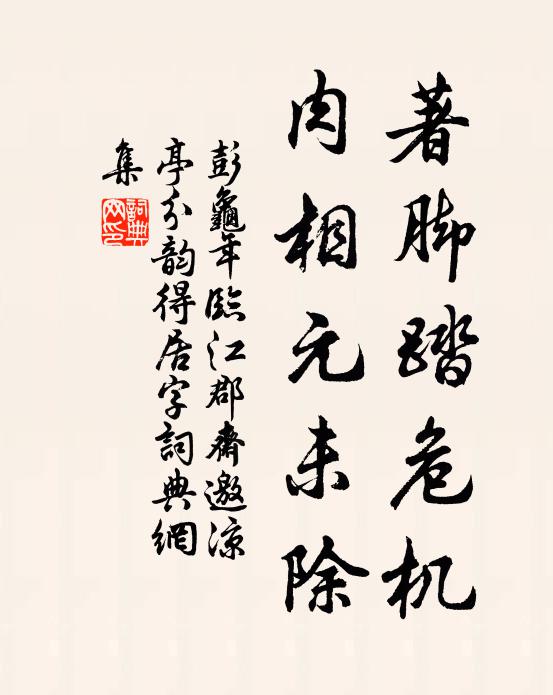 著脚踏危机
肉相元未除
彭龜年臨江郡齋邀涼
亭分韵得居字詞典網
集
詞典
网印